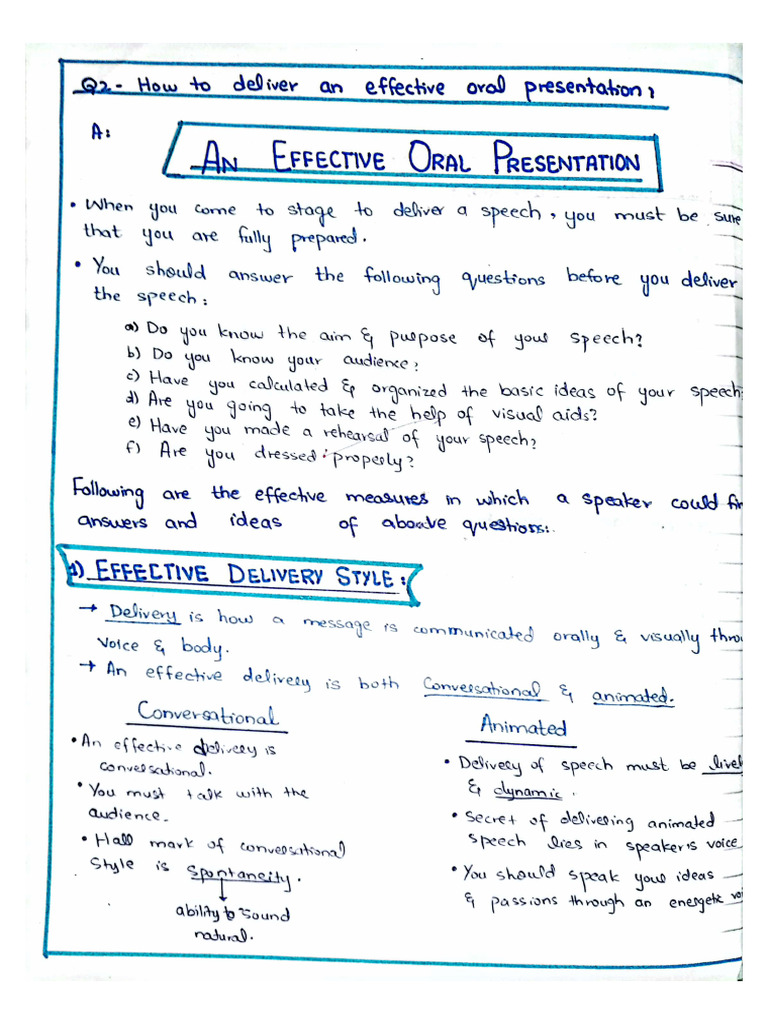 Q2- How to deliver an effective oral presentation:
A:
AN EFFECTIVE ORAL PRESENTATION
• When you come to stage to deliver a speech, you must be sure
that you are fully prepared.
• You should answer the following questions before you deliver
the speech:
a) Do you know the aim & purpose of your speech?
b) Do you know your audience?
c) Have you calculated & organized the basic ideas of your speech?
d) Are you going to take the help of visual aids?
e) Have you made a rehearsal of your speech?
f) Are you dressed properly?
Following are the effective measures in which a speaker could fin
answers and ideas of above questions:
1) EFFECTIVE DELIVERY STYLE:
→ Delivery is how a message is communicated orally & visually throu
voice & body.
→ An effective delivery is both Conversational & animated.
Conversational
• An effective delivery is
conversational.
• You must talk with the
audience.
• Hall mark of conversational
style is Spontaneity.
↓
ability to sound
natural.
Animated
• Delivery of speech must be livel
& dynamic.
• Secret of delivering animated
speech lies in speaker's voice
• You should speak your ideas
& passions through an energetic voi